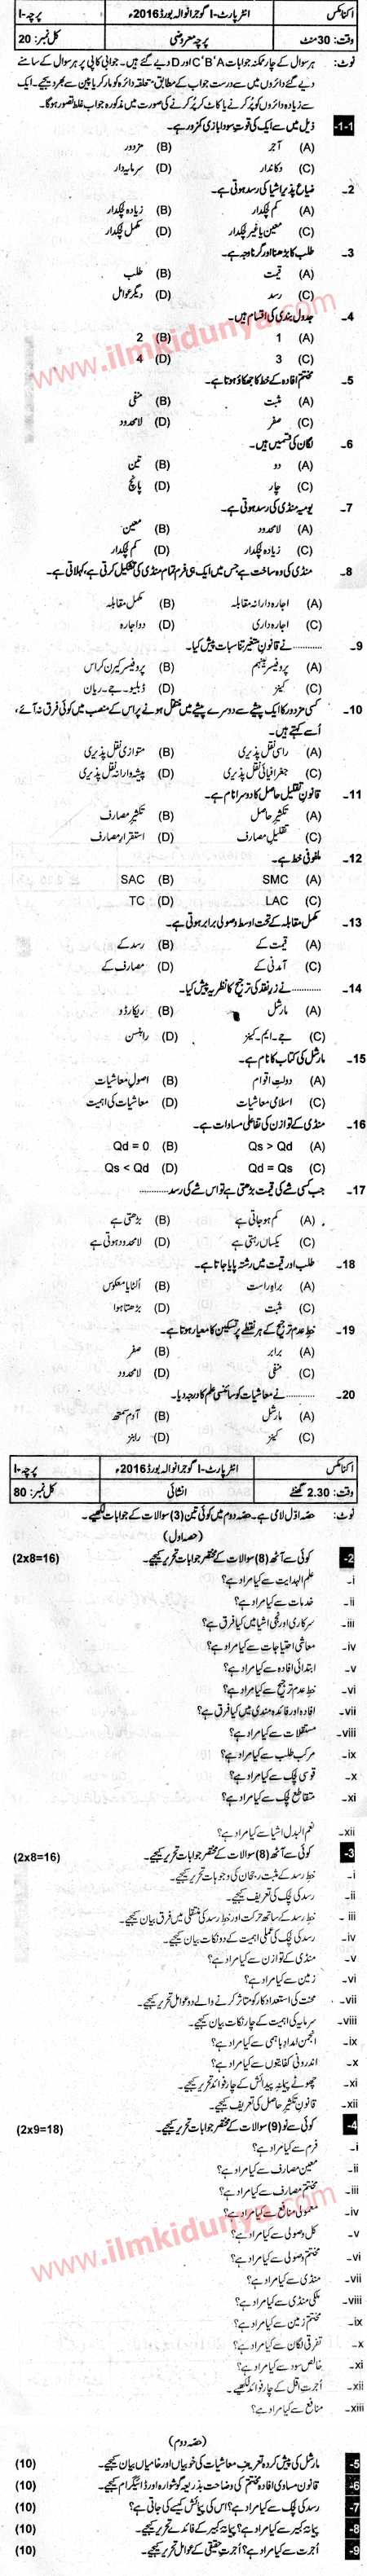 اکنامکس انٹرپارٹ-I گوجرانوالہ بورڈ 2016ء پرچہ-I
وقت: 30 منٹ پرچہ معروضی کل نمبر: 20
نوٹ: ہر سوال کے چار ممکنہ جوابات C'B'A اور D دیے گئے ہیں۔ جوابی کاپی پر ہر سوال کے سامنے
دیے گئے دائروں میں سے درست جواب کے مطابق متعلقہ دائرہ کو مارکر یا پین سے بھر دیجیے۔ ایک
سے زیادہ دائروں کو پُر کرنے یا کاٹ کر پُر کرنے کی صورت میں مذکورہ جواب غلط تصور ہوگا۔
1-1- ذیل میں سے ایک کی قوتِ سودا بازی کمزور ہے۔
(A) آجر (B) مزدور
(C) دکاندار (D) سرمایہ دار
2- ضیاع پذیر اشیا کی رسد ہوتی ہے۔
(A) کم لچکدار (B) زیادہ لچکدار
(C) معین یا غیر لچکدار (D) مکمل لچکدار
3- طلب کا بڑھنا اور گرنا وجہ ہے۔
(A) قیمت (B) طلب
(C) رسد (D) دیگر عوامل
4- جدول بندی کی اقسام ہیں۔
(A) 1 (B) 2
(C) 3 (D) 4
5- مختتم افادہ کے خط کا جھکاؤ ہوتا ہے۔
(A) مثبت (B) منفی
(C) صفر (D) لامحدود
6- لگان کی قسمیں ہیں۔
(A) دو (B) تین
(C) چار (D) پانچ
7- یومیہ منڈی کی رسد ہوتی ہے۔
(A) لامحدود (B) معین
(C) زیادہ لچکدار (D) کم لچکدار
8- منڈی کی وہ ساخت ہے جس میں ایک ہی فرم تمام منڈی کی تشکیل کرتی ہے، کہلاتی ہے۔
(A) اجارہ دارانہ مقابلہ (B) مکمل مقابلہ
(C) اجارہ داری (D) دو اجارہ
9- ............ نے قانونِ متغیر تناسبات پیش کیا۔
(A) پروفیسر بینہم (B) پروفیسر کیرن کراس
(C) کینز (D) ڈبلیو۔جے۔ریان
10- کسی مزدور کا ایک پیشے سے دوسرے پیشے میں منتقل ہونے پر اس کے منصب میں کوئی فرق نہ آئے،
اُسے کہتے ہیں۔
(A) راسی نقل پذیری (B) متوازی نقل پذیری
(C) جغرافیائی نقل پذیری (D) پیشہ وارانہ نقل پذیری
11- قانونِ تقلیلِ حاصل کا دوسرا نام ہے۔
(A) تکثیرِ حاصل (B) تکثیرِ مصارف
(C) تقلیلِ مصارف (D) استقرارِ مصارف
12- ملفوفی خط ہے۔
(A) SMC (B) SAC
(C) LAC (D) TC
13- مکمل مقابلہ کے تحت اوسط وصولی برابر ہوتی ہے۔
(A) قیمت کے (B) رسد کے
(C) آمدنی کے (D) مصارف کے
14- ............ نے زرِ نقد کی ترجیح کا نظریہ پیش کیا۔
(A) مارشل (B) ریکارڈو
(C) جے۔ایم۔کینز (D) رابنسن
15- مارشل کی کتاب کا نام ہے۔
(A) دولتِ اقوام (B) اصولِ معاشیات
(C) اسلامی معاشیات (D) معاشیات کی اہمیت
16- منڈی کے توازن کی تفاعلی مساوات ہے۔
(A) Qs > Qd (B) Qd = 0
(C) Qd = Qs (D) Qs < Qd
17- جب کسی شے کی قیمت بڑھتی ہے تو اس شے کی رسد............
(A) کم ہو جاتی ہے (B) بڑھتی ہے
(C) یکساں رہتی ہے (D) لامحدود ہوتی ہے
18- طلب اور قیمت میں رشتہ پایا جاتا ہے۔
(A) براہِ راست (B) اُلٹا یا معکوس
(C) مثبت (D) بڑھتا ہوا
19- خطِ عدم ترجیح کے ہر نقطے پر تسکین کا معیار ہوتا ہے۔
(A) برابر (B) صفر
(C) منفی (D) لامحدود
20- ............ نے معاشیات کو سائنسی علم کا درجہ دیا۔
(A) مارشل (B) آدم سمتھ
(C) کینز (D) رابنز
اکنامکس انٹرپارٹ-I گوجرانوالہ بورڈ 2016ء پرچہ-I
وقت: 2.30 گھنٹے انشائی کل نمبر: 80
نوٹ: حصہ اوّل لازمی ہے۔ حصہ دوم میں کوئی تین (3) سوالات کے جوابات لکھیے۔
(حصہ اول)
2- کوئی سے آٹھ (8) سوالات کے مختصر جوابات تحریر کیجیے۔ (2x8=16)
i- علم الہدایت سے کیا مراد ہے؟
ii- خدمات سے کیا مراد ہے؟
iii- سرکاری اور نجی اشیا میں کیا فرق ہے؟
iv- معاشی احتیاجات سے کیا مراد ہے؟
v- ابتدائی افادہ سے کیا مراد ہے؟
vi- خطِ عدم ترجیح سے کیا مراد ہے؟
vii- افادہ اور فائدہ مندی میں کیا فرق ہے؟
viii- مستقلات سے کیا مراد ہے؟
ix- مرکب طلب سے کیا مراد ہے؟
x- قوسی لچک سے کیا مراد ہے؟
xi- متقاطع لچک سے کیا مراد ہے؟
xii- نعم البدل اشیا سے کیا مراد ہے؟
3- کوئی سے آٹھ (8) سوالات کے مختصر جوابات تحریر کیجیے۔ (2x8=16)
i- خطِ رسد کے مثبت رجحان کی وجوہات تحریر کیجیے۔
ii- رسد کی لچک کی تعریف کیجیے۔
iii- خطِ رسد کے ساتھ حرکت اور خطِ رسد کی منتقلی میں فرق بیان کیجیے۔
iv- رسد کی لچک کی عملی اہمیت کے دو نکات بیان کیجیے۔
v- منڈی کے توازن سے کیا مراد ہے؟
vi- زمین سے کیا مراد ہے؟
vii- محنت کی استعدادِ کار کو متاثر کرنے والے دو عوامل تحریر کیجیے۔
viii- سرمایہ کی اہمیت کے چار نکات بیان کیجیے۔
ix- انجمن امدادِ باہمی سے کیا مراد ہے؟
x- اندرونی کفایتوں سے کیا مراد ہے؟
xi- چھوٹے پیمانہ پیدائش کے چار فوائد تحریر کیجیے۔
xii- قانونِ تکثیرِ حاصل کی تعریف کیجیے۔
4- کوئی سے نو (9) سوالات کے مختصر جوابات تحریر کیجیے۔ (2x9=18)
i- فرم سے کیا مراد ہے؟
ii- معین مصارف سے کیا مراد ہے؟
iii- مختتم مصارف سے کیا مراد ہے؟
iv- معمولی منافع سے کیا مراد ہے؟
v- کل وصولی سے کیا مراد ہے؟
vi- مختتم وصولی سے کیا مراد ہے؟
vii- منڈی سے کیا مراد ہے؟
viii- ملکی منڈی سے کیا مراد ہے؟
ix- مختتم زمین سے کیا مراد ہے؟
x- تفرقی لگان سے کیا مراد ہے؟
xi- خالص سود سے کیا مراد ہے؟
xii- اُجرتِ اقل کے چار فوائد لکھیے۔
xiii- منافع سے کیا مراد ہے؟
(حصہ دوم)
5- مارشل کی پیش کردہ تعریفِ معاشیات کی خوبیاں اور خامیاں بیان کیجیے۔ (10)
6- قانون مساوی افادہ مختتم کی وضاحت بذریعہ گوشوارہ اور ڈائیگرام کیجیے۔ (10)
7- رسد کی لچک سے کیا مراد ہے؟ اس کی پیمائش کیسے کی جاتی ہے؟ (10)
8- پیمانہ کبیر سے کیا مراد ہے؟ پیمانہ کبیر کے فائدے تحریر کیجیے۔ (10)
9- اُجرت سے کیا مراد ہے؟ اُجرتِ حقیقی کے عوامل تحریر کیجیے۔ (10)
www.ilmkidunya.com
www.ilmkidunya.com